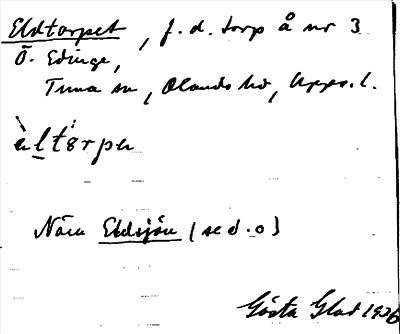 Eldtorpet, f.d. torp å nr 3
Ö. Edinge,
Tuna sn, Olands hd, Upps. l.
èltórpə
Nära Eldsjön (se d. o)
Gösta Glad 1936